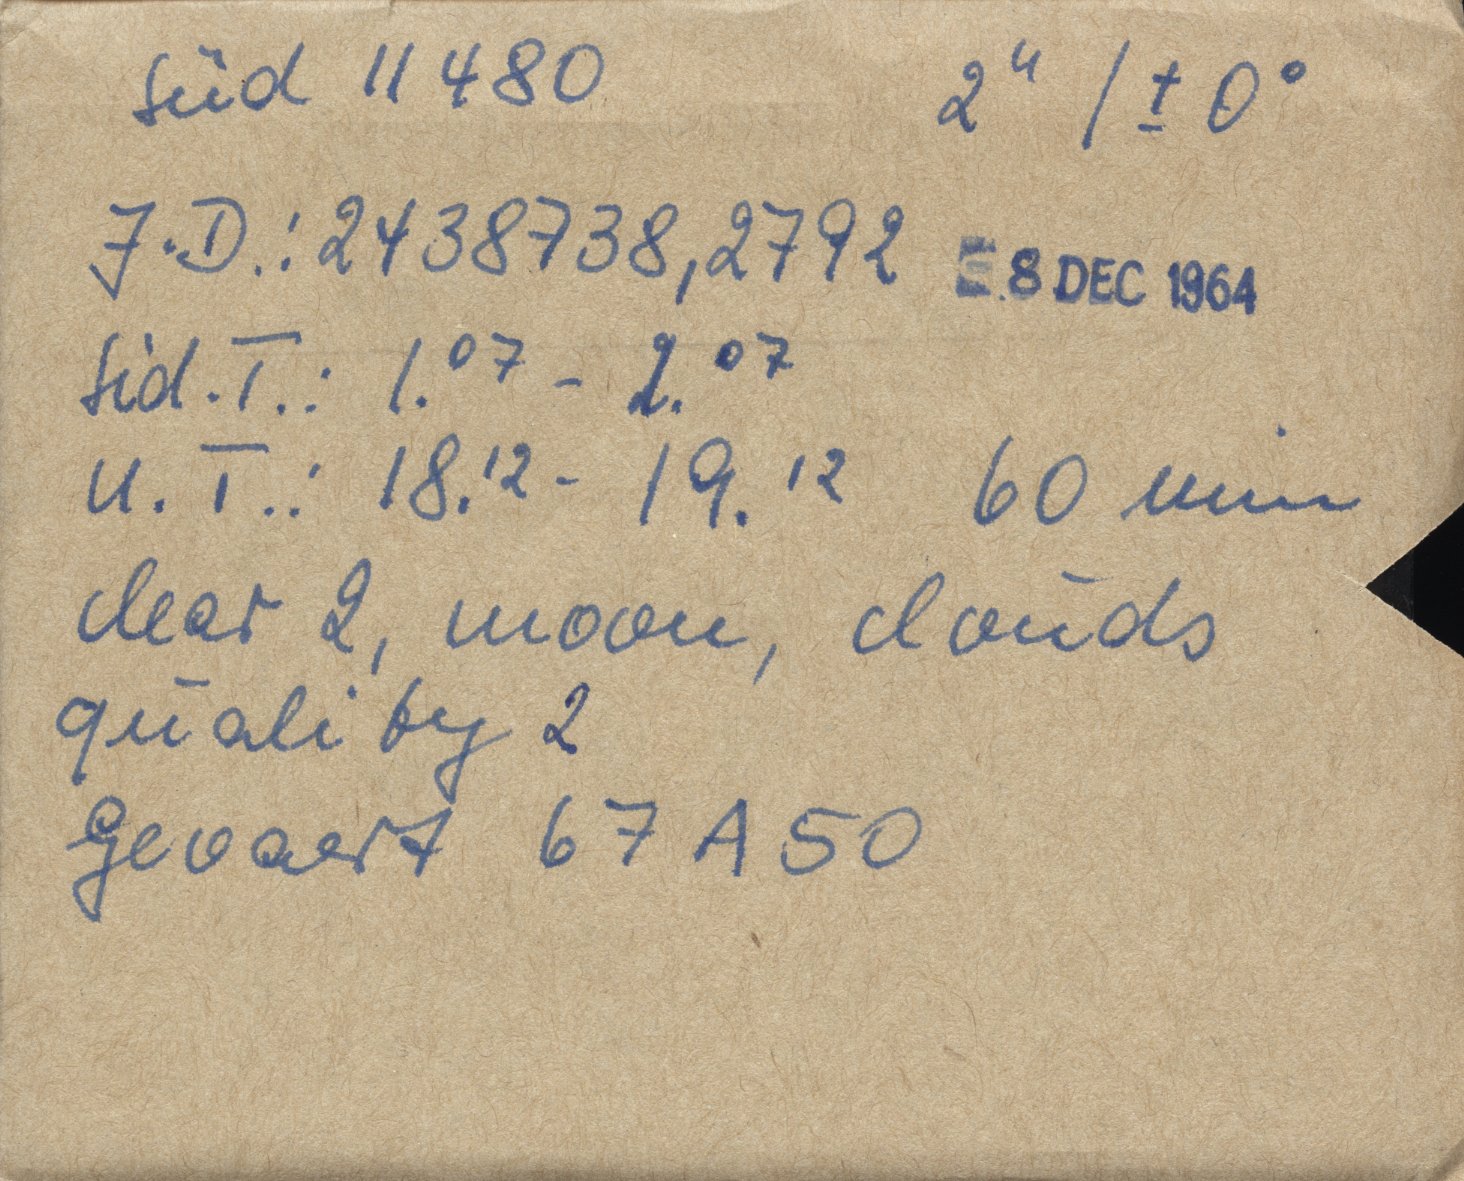 Süd 11480 2ʰ / ± 0°
J.D.: 2438738,2792 8 DEC 1964
Sid.T.: 1.⁰⁷ - 2.⁰⁷
U.T.: 18.¹² - 19.¹² 60 min
clear 2, moon, clouds
quality 2
Gevaert 67 A 50